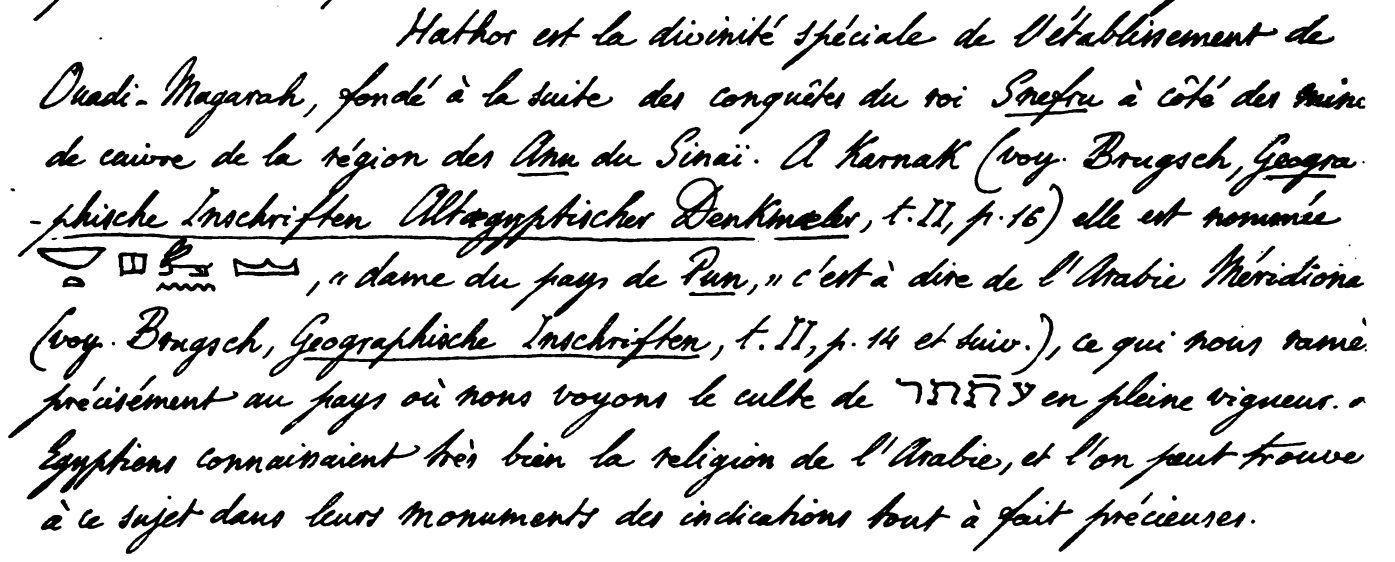 Hathor est la divinité spéciale de l'établissement de
Ouadi-Magarah, fondé à la suite des conquêtes du roi Snefru à côté des mine
de cuivre de la région des Anu du Sinaï. A Karnak (voy. Brugsch, Geogra
-phische Inschriften Altægyptischer Denkmæler, t. II, p. 16) elle est nommée
, « dame du pays de Pun, » c'est à dire de l'Arabie Méridiona
(voy. Brugsch, Geographische Inschriften, t. II, p. 14 et suiv.), ce qui nous ramè
précisément au pays où nous voyons le culte de en pleine vigueur.
Egyptiens connaissaient très bien la religion de l'Arabie, et l'on peut trouve
à ce sujet dans leurs monuments des indications tout à fait précieuses.